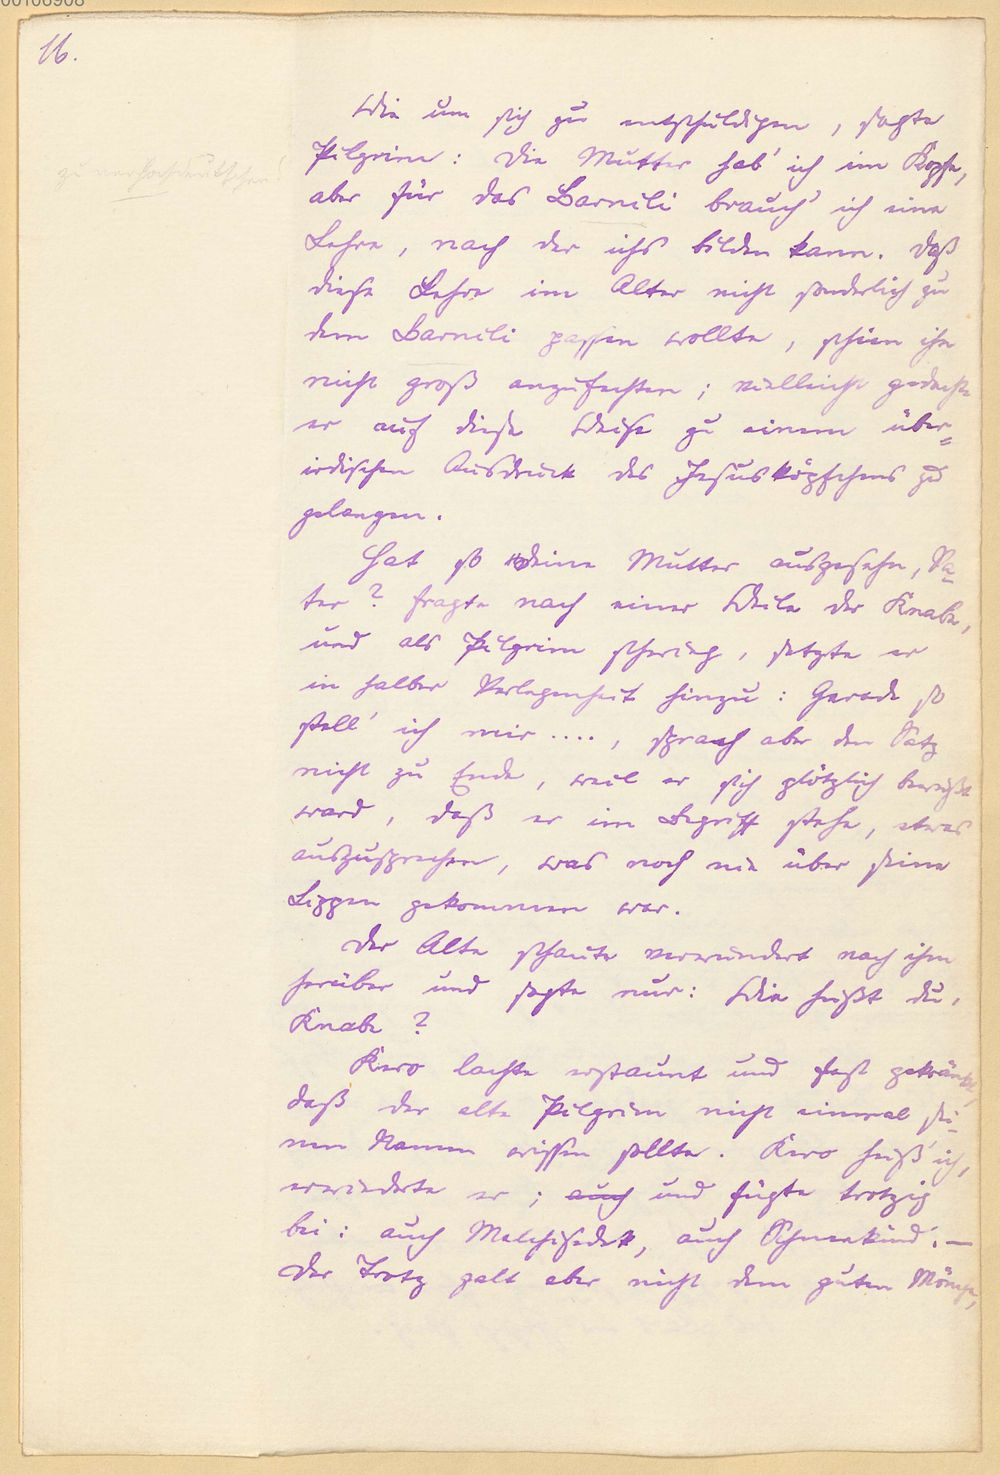 00106908
16.
Wie um sich zu entschuldigen, sagte
Pilgrim: Die Mutter hab' ich im Kopfe,
zu verhochdeutschen!
aber für das Barnili brauch' ich eine
Lehre, nach der ichs bilden kann. Daß
diese Lehre im Alter nicht sonderlich zu
dem Barnili passen wollte, schien ihn
nicht groß anzufechten; vielleicht gedachte
er auf diese Weise zu einem über-
irdischen Ausdruck des Jesusköpfchens zu
gelangen.
Hat so deine Mutter ausgesehn, Va-
ter? fragte nach einer Weile der Knabe,
und als Pilgrim schwieg, setzte er
in halber Verlegenheit hinzu: Gerade so
stell' ich mir ...., sprach aber den Satz
nicht zu Ende, weil er sich plötzlich bewußt
ward, daß er im Begriff stehe, etwas
auszusprechen, was noch nie über seine
Lippen gekommen war.
Der Alte schaute verwundert nach ihm
herüber und sagte nur: Wie heißt du,
Knabe?
Kero lachte erstaunt und fast gekränkt,
daß der alte Pilgrim nicht einmal sei-
nen Namen wissen sollte. Kero heiß' ich,
erwiederte er; auch und fügte trotzig
bei: auch Melchisedek, auch Schneekind. —
Der Trotz galt aber nicht dem guten Mönche,